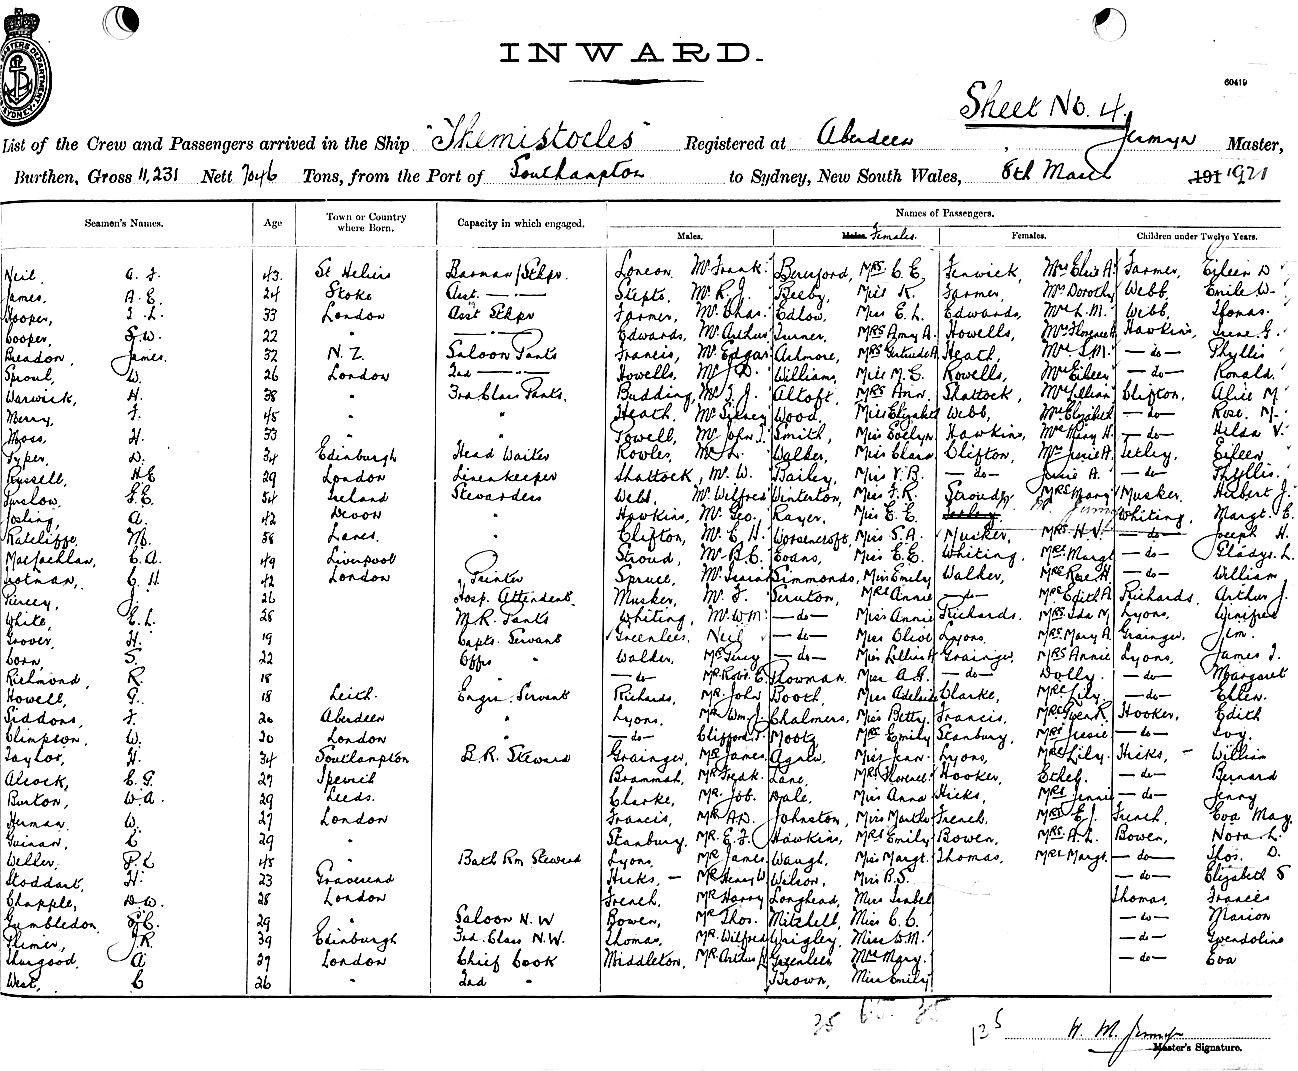 INWARD.
60419
Sheet No. 4.
List of the Crew and Passengers arrived in the Ship "Themistocles" Registered at Aberdeen, Jermyn Master,
Burthen, Gross 11,231 Nett 7046 Tons, from the Port of Southampton to Sydney, New South Wales, 8th March 191 1921
Names of Passengers.
Seamen's Names. Age Town or Country where Born. Capacity in which engaged. Males. Males. Females. Females. Children under Twelve Years.
Neil, 43 St Heliers Barman/Stkpr. Mr Frank. Beresford, Mrs C. E. Fenwick, Mrs Elsie A. Farmer, Eileen D
James, A. E. 24 Stoke Asst. Stepto, Mr R. J. Beeby, Miss K. Farmer, Mrs Dorothy Webb, Emile W.
Hooper, 33 London Asst Stkpr Farmer, Mr Chas. Edlow, Miss E. L. Edwards, Mrs L. M. Webb, Thomas.
Cooper, S. W. 22 " Edwards, Mr Arthur Turner, Mrs Amy A. Howells, Mrs Florence A. Hawkins, Irene G.
Breadon, James. 32 N. Z. Saloon Pants Francis, Mr Edgar Ashmore, Mrs Gertrude A. Heath, Mrs S. M. — do — Phyllis
Sproul, W. 26 London 2nd Howells, Mr D. William, Miss M. E. Rowells, Mrs Eileen — do — Ronald.
Warwick, H. 38 " 3rd Class Pants. Budding, Mr S. J. Altoft, Mrs Ann. Shattock, Mrs Lillian Clifton, Alice M.
Merry, F. 45 " " Heath, Mr Sidney Wood, Miss Elizabeth Webb, Mrs Elizabeth — do — Rose. M.
Moss, H. 53 " " Powell, Mr John T. Smith, Miss Evelyn. Hawkins, Mrs Mary H. — do — Hilda V.
Typer, D. 34 Edinburgh Head Waiter Rowles, Mr L. Walker, Miss Clara Clifton, Mrs Jessie A. Tetley, Eileen
Russell, H E 29 London Linenkeeper Shattock, Mr W. Bailey, Miss V. B. — do — Josie A. — do — Phyllis.
Purslow, E. E. 54 Ireland Stewardess Webb, Mr Wilfred Winterton, Miss F. R. Stroud, Mrs Mary Musker, Hilbert J.
Josling, A. 42 Devon " Hawkins, Mr Geo. Rayer, Miss E. E. Tetley Whiting, Margt. E.
Ratcliffe, M. 58 Lancs. " Clifton, Mr E. H. Worsencroft, Miss S. A. Musker, Mrs H. V. — do — Joseph H.
MacLachlan, C. A. 49 Liverpool Stroud, Mr B. C. Evans, Miss E. E. Whiting, Mrs Margt — do — Gladys. L.
Totman, C. H. 42 London Painter Spruce, Mr Isaiah Simmonds, Miss Emily Walker, Mrs Rose H — do — William
Piercey, J. 26 Hosp. Attendent. Musker, Mr F. Scruton, Mrs Annie — do — Mrs Edith A. Richards, Arthur J.
White, E. L. 28 M. R. Pants Whiting, Mr Wm. — do — Miss Annie Richards, Mrs Ida M. Lyons, Winifred
Groover H. 19 Capts. Servant Greenlees, Neil — do — Miss Olive Lyons, Mrs Mary A. Grainger, Jim.
Corn, S. 22 Offrs " Walker, Mr Percy — do — Miss Lillie A. Grainger, Mrs Annie Lyons, James T.
Richmond, R. 18 — do — Mr Robt. E. Plowman, Miss A. G. — do — Dolly. — do — Margaret
Howell, G. 18 Leith. Engrs. Servant Richards, Mr John Booth, Miss Adelaide Clarke, Mrs Lily — do — Ellen.
Siddons, F. 20 Aberdeen " Lyons, Mr Wm J. Chalmers, Miss Betty. Francis, Mrs Gwen R. Hooker, Edith
Clinpson, W. 20 London — do — Clifford T. Mootz, Mrs Emily Stanbury, Mrs Jessie — do — Ivy.
Taylor, H. 34 Southampton B. R. Steward Grainger, Mr James. Agnew, Miss Jean. Lyons, Mrs Lily. Hicks, — William
Alcock, E. G. 27 Ipswich Brammah, Mr Fredk. Lane, Mrs Florence Hooker, Ethel — do — Bernard
Burton, W. A. 29 Leeds. Clarke, Mr Job. Dale, Miss Anna Hicks, Mrs Jennie — do — Jenny
Herman W. 27 London Francis, Mr A. D. Johnston, Miss Martha French, Mrs E. J. French, Eva May
Guinan, C 29 " Stanbury Mr E. F. Hawkins, Mrs Emily Bowen, Mrs A. L. Bowen, Nora L.
Weller, P. C 45 " Bath Rm Steward Lyons, Mr James Waugh, Miss Margt. Thomas, Mrs Margt. — do — Thos. D.
Stoddart, H. 23 Gravesend Hicks, — Mr Henry W. Wilson, Miss B. S. — do — Elizabeth S
Chapple, D. W. 28 London French, Mr Harry Longhead, Miss Isabel Thomas, Francis
Gumbledon, S. C. 29 " Saloon N. W Bowen, Mr Thos. Mitchell, Miss C. C. — do — Marion
Plimer, J. R. 39 Edinburgh 3rd Class N. W. Thomas, Mr Wilfred Wrigley, Miss D. M. — do — Gwendoline
Thurgood, A 27 London Chief Cook Middleton, Mr Arthur H Greenlees Mrs Mary. — do — Eva
West, C 26 " 2nd " Brown, Miss Emily
35 65 35
135
H. M. Jermyn
Master's Signature.